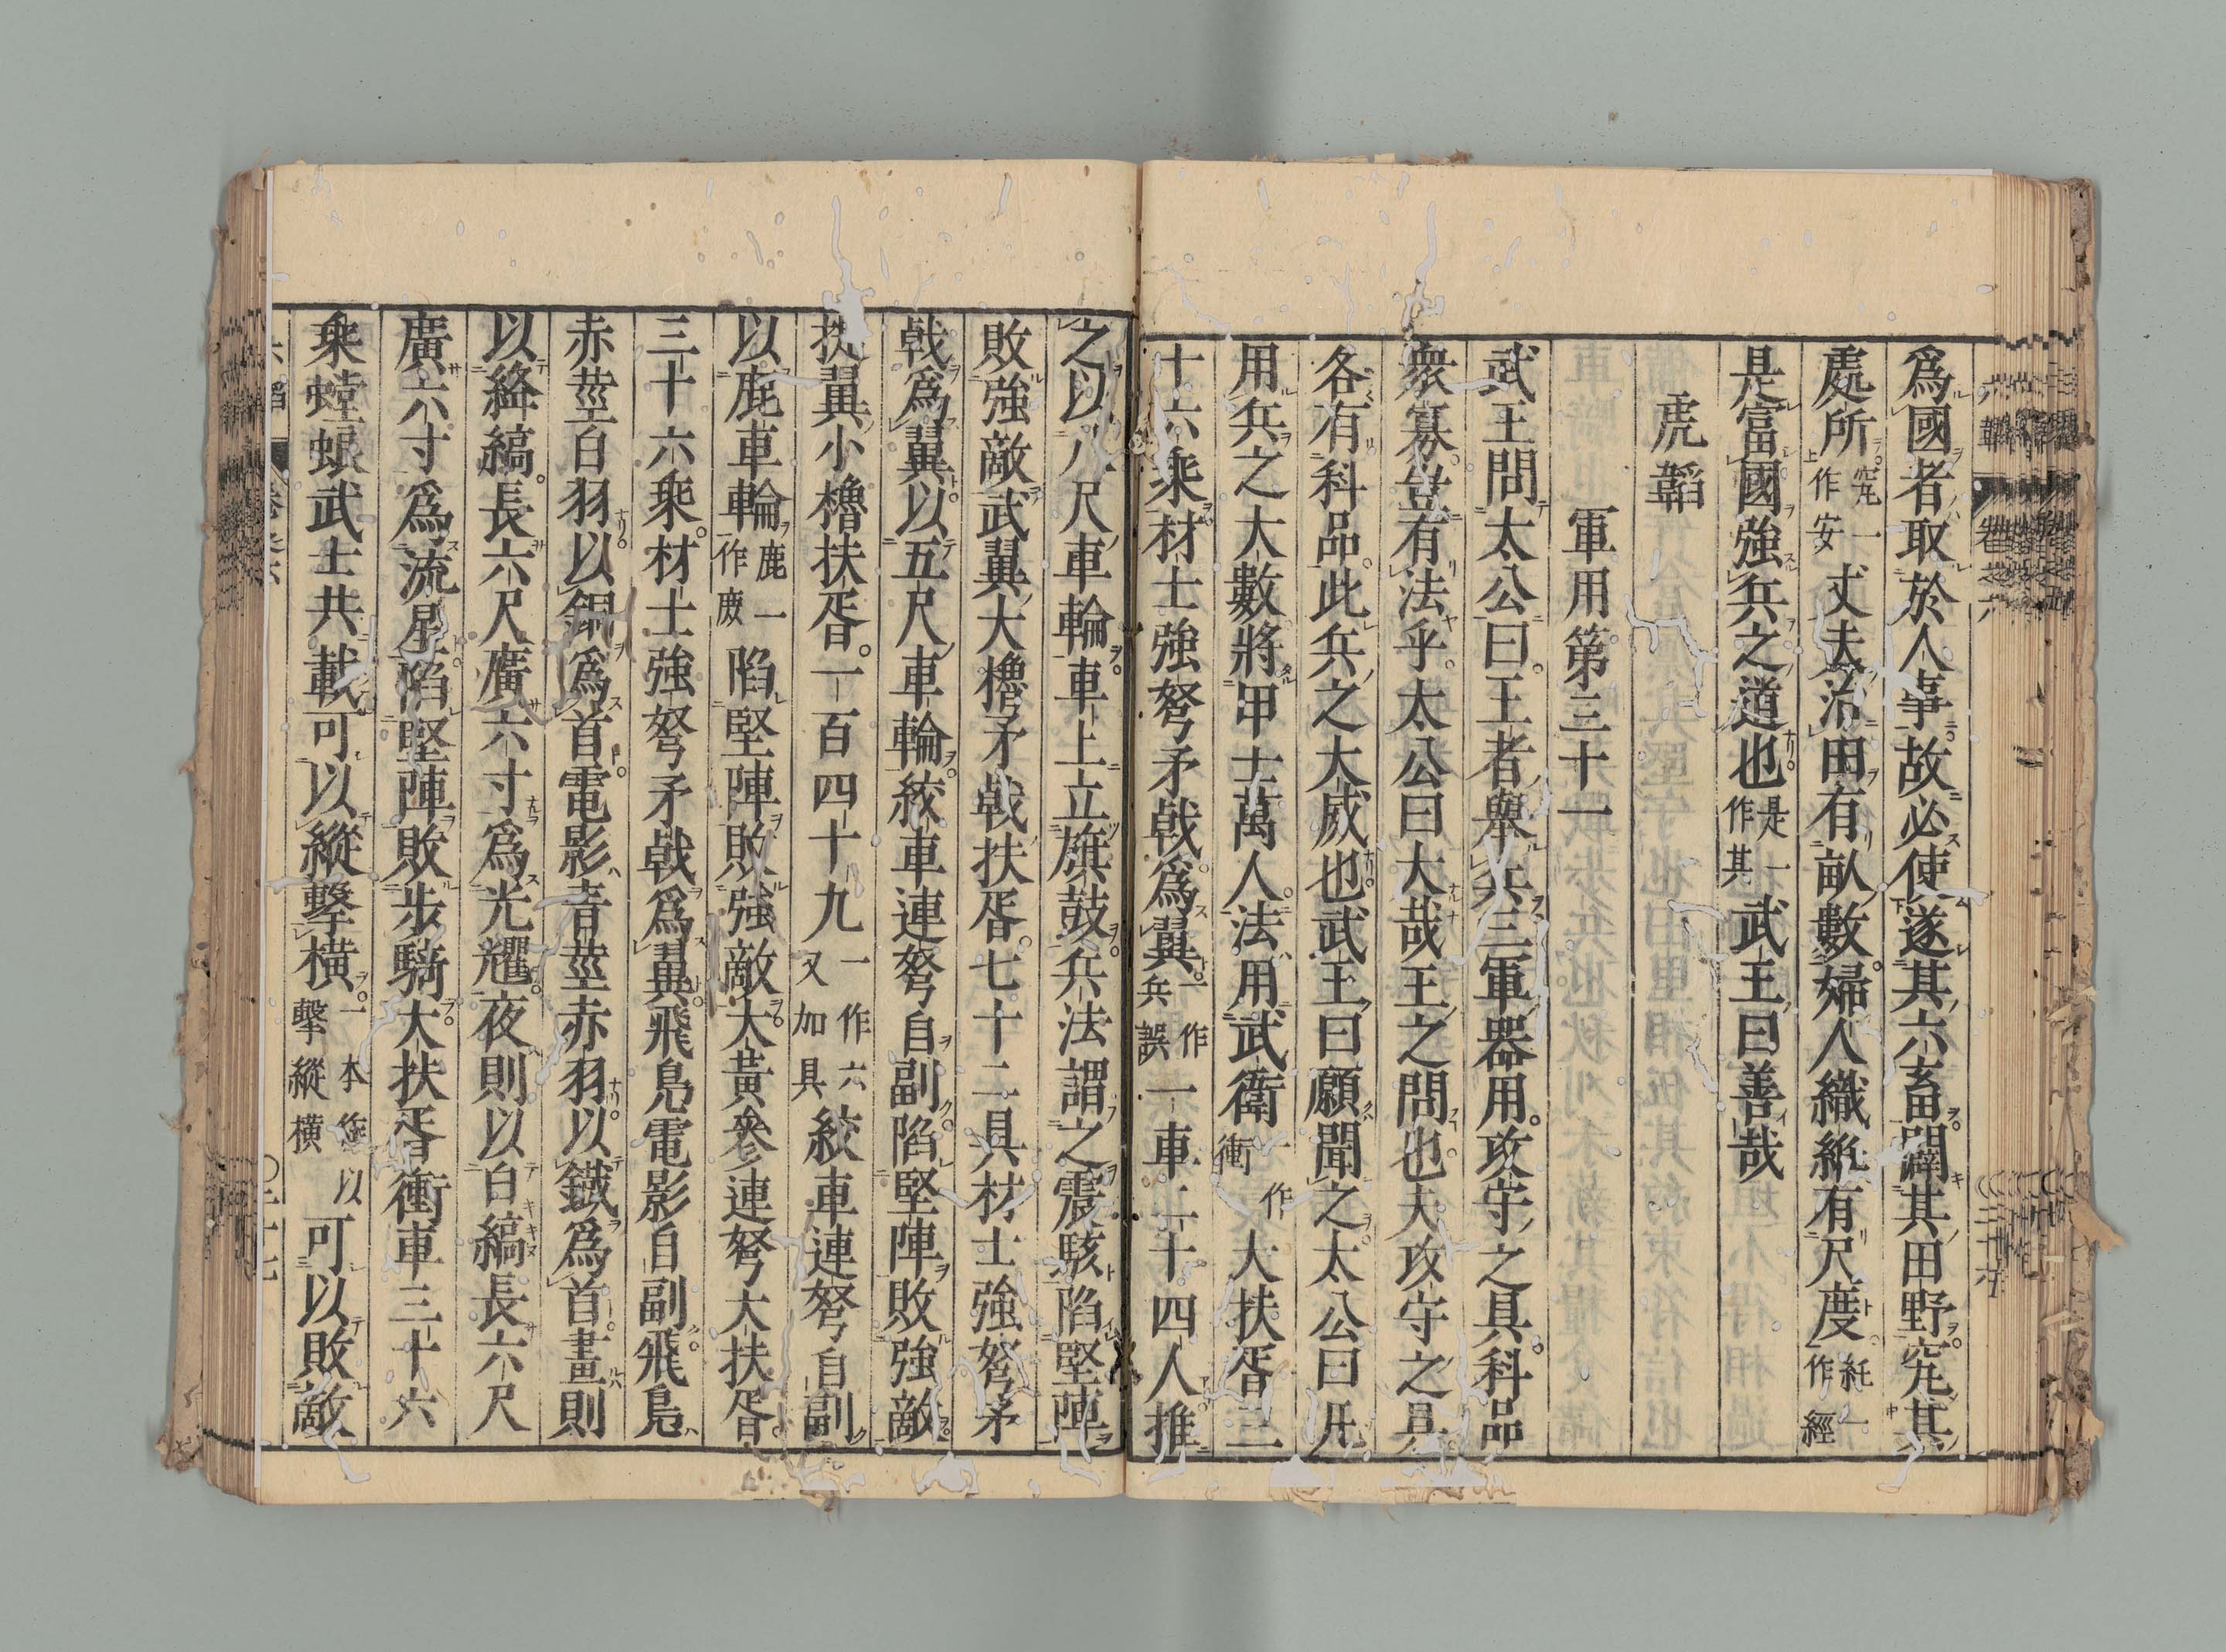 爲國者取於人事故必使遂其六畜闢其田野究其
處所究一作安丈夫治田有畝數婦人織絍有尺度絍一作經
是富國強兵之道也是一作其武王曰善哉
虎韜
軍用第三十一
武王問太公曰王者舉兵三軍器用攻守之具科品
衆寡豈有法乎太公曰大哉王之問也夫攻守之具
各有科品此兵之大威也武王曰願聞之太公曰凡
用兵之大數將甲士萬人法用武衛一作衝大扶胥三
十六乘材士強弩矛戟爲翼一作兵誤一車二十四人推
之以八尺車輪車上立旗鼓兵法謂之震駭陷堅陣
敗強敵武翼大櫓矛戟扶胥七十二具材士強弩矛
戟爲翼以五尺車輪絞車連弩自副陷堅陣敗強敵
提翼小櫓扶胥一百四十九一作六又加具絞車連弩自副
以鹿車輪鹿一作廒陷堅陣敗強敵大黃參連弩大扶胥
三十六乘材士強弩矛戟爲翼飛鳧電影自副飛鳧
赤莖白羽以銅爲首電影青莖赤羽以鐵爲首晝則
以絳縞長六尺廣六寸爲光耀夜則以白縞長六尺
廣六寸爲流星陷堅陣敗步騎大扶胥衝車三十六
乘螳蜋武士共載可以縱擊橫一本作以擊縱橫可以敗敵